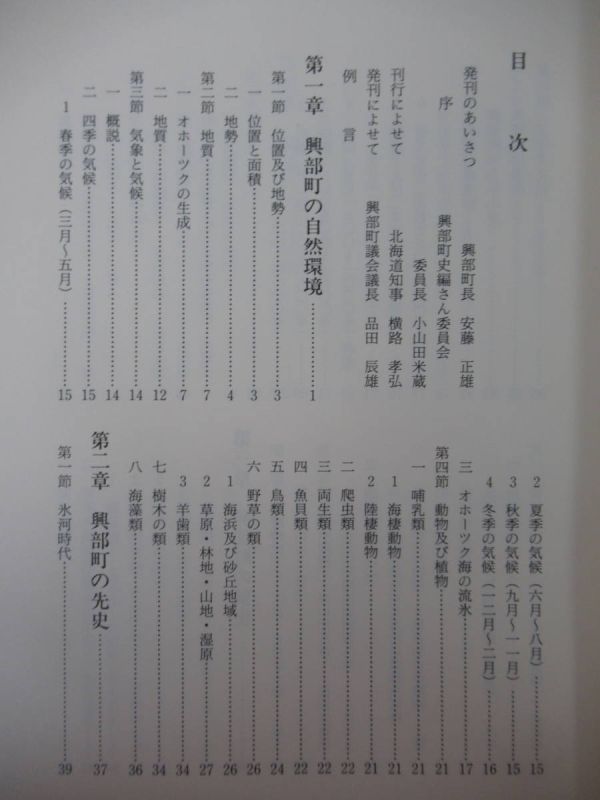 目次
発刊のあいさつ 興部町長 安藤 正雄
序 興部町史編さん委員会
委員長 小山田米蔵
刊行によせて 北海道知事 横路 孝弘
発刊によせて 興部町議会議長 品田 辰雄
例言
第一章 興部町の自然環境 1
第一節 位置及び地勢 3
一 位置と面積 3
二 地勢 4
第二節 地質 7
一 オホーツクの生成 7
二 地質 12
第三節 気象と気候 14
一 概説 14
二 四季の気候 15
1 春季の気候(三月〜五月) 15
2 夏季の気候(六月〜八月) 15
3 秋季の気候(九月〜一一月) 15
4 冬季の気候(一二月〜二月) 16
三 オホーツク海の流氷 17
第四節 動物及び植物 21
一 哺乳類 21
1 海棲動物 21
2 陸棲動物 21
二 爬虫類 22
三 両生類 22
四 魚貝類 22
五 鳥類 24
六 野草の類 26
1 海浜及び砂丘地域 26
2 草原・林地・山地・湿原 27
3 羊歯類 34
七 樹木の類 34
八 海藻類 36
第二章 興部町の先史 37
第一節 氷河時代 39